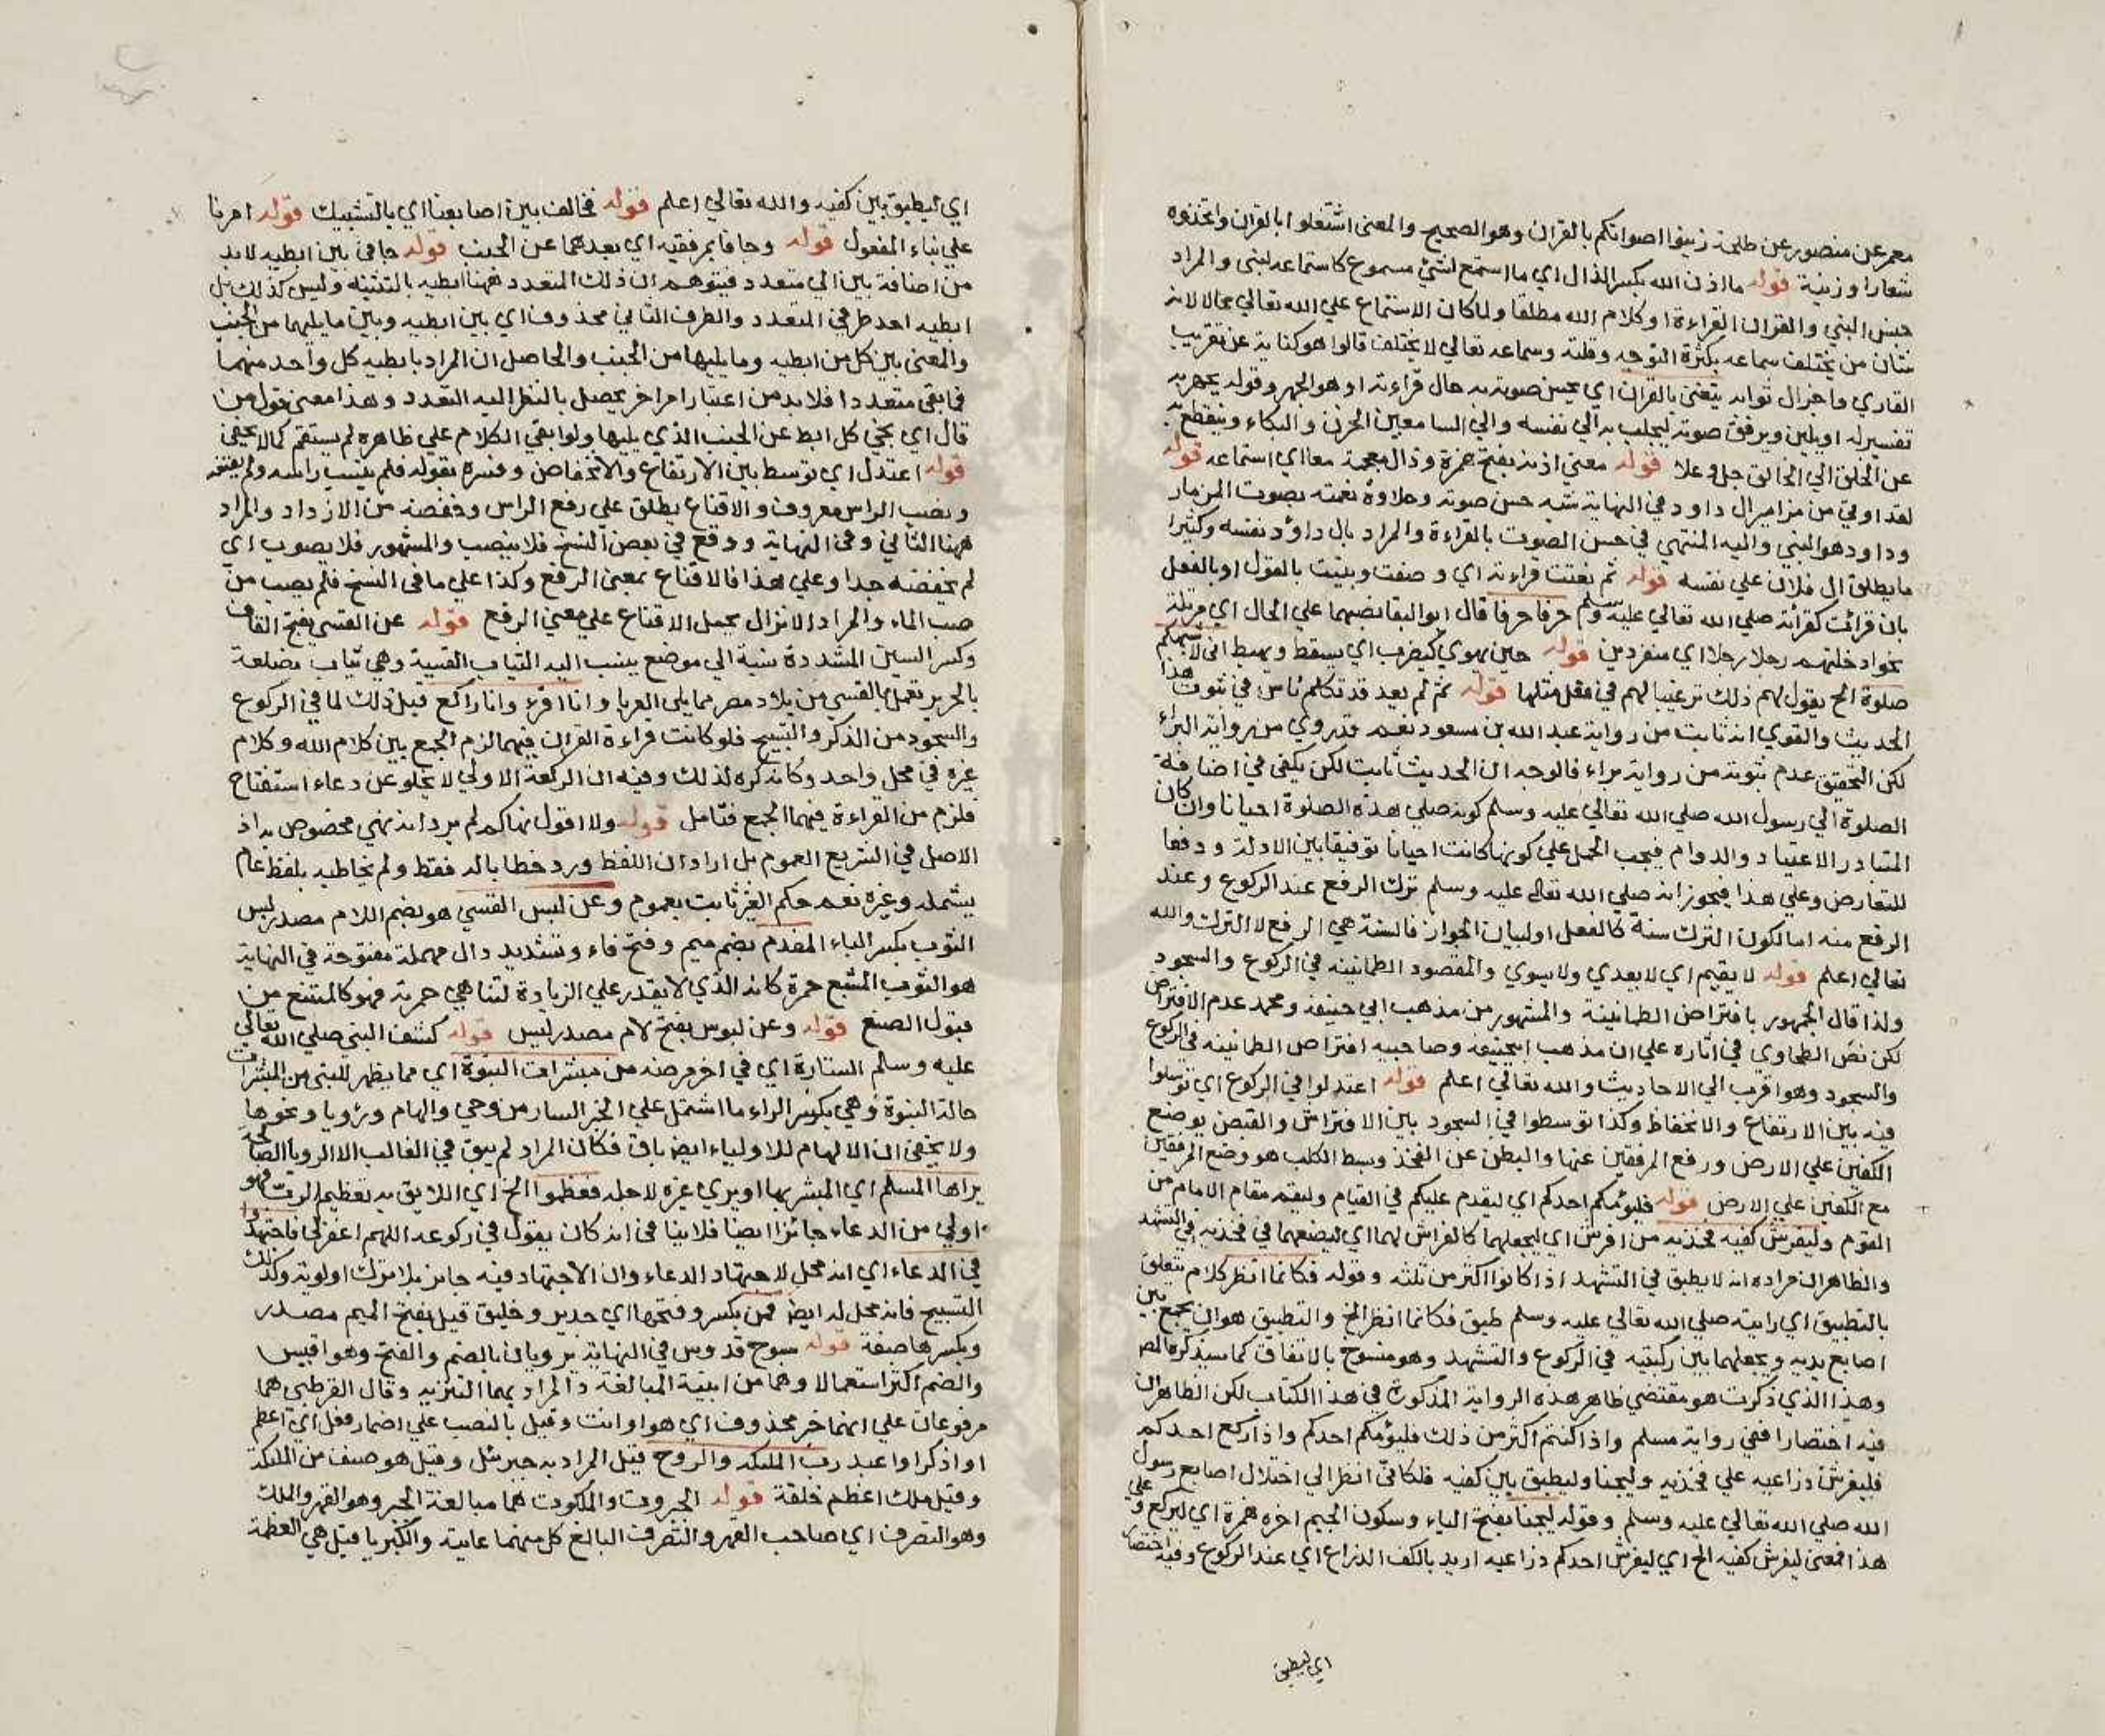 معمر عن منصور عن طلحة زينوا اصواتكم بالقران وهو الصحيح والمعنى اشتغلوا بالقران واتخذوه
شعارا وزينة قوله ما اذن الله بكسر الذال اي ما استمع لشئ مسموع كاستماعه لنبي والمراد
جنس النبي والقران القراءة او كلام الله مطلقا ولما كان الاستماع علي الله تعالي محالا لانه
شان من يختلف سماعه بكثرة التوجه وقلته وسماعه تعالي لا يختلف قالوا هو كناية عن تقريب
القاري واجزال ثوابه يتغنى بالقران اي يحسن صوته به حال قراءته او هو الجهر وقوله يجهر به
تفسير له او يلين ويرقق صوته ليجلب به الي نفسه والي السامعين الحزن والبكاء وينقطع به
عن الخلق الي الخالق جل وعلا قوله معني اذنه بفتح همزة وذال معجمة معا اي استماعه قوله
لقد اوتي من مزامير ال داود في النهاية شبه حسن صوته وحلاوة نغمته بصوت المزمار
وداود هو النبي واليه المنتهي في حسن الصوت بالقراءة والمراد بال داؤد نفسه وكثيرا
ما يطلق ال فلان علي نفسه قوله ثم نعتت قراءته اي وصفت وبينت بالقول او بالفعل
بان قرأت كقرائته صلي الله تعالي عليه وسلم حرفا حرفا قال ابو البقا نصبهما علي الحال اي مرتلة
نحو ادخلتهم رجلا رجلا اي منفردين قوله حين يهوي كيضرب اي يسقط ويهبط اني لاشبهكم
صلوة الخ يقول لهم ذلك ترغيبا لهم في فعل مثلها قوله ثم لم يعد قد تكلم ناس في ثبوت هذا
الحديث والقوي انه ثابت من رواية عبد الله بن مسعود نعم قد روي من رواية البراء
لكن التحقيق عدم ثبوته من رواية براء فالوجه ان الحديث ثابت لكن يكفي في اضافة
الصلوة الي رسول الله صلي الله تعالي عليه وسلم كونه صلي هذه الصلوة احيانا وان كان
المتبادر الاعتياد والدوام فيجب الحمل علي كونها كانت احيانا توفيقا بين الادلة ودفعا
للتعارض وعلي هذا فيجوز انه صلي الله تعالي عليه وسلم ترك الرفع عند الركوع وعند
الرفع منه اما لكون الترك سنة كالفعل او لبيان الجواز فالسنة هي الرفع لا الترك والله
تعالي اعلم قوله لا يقيم اي لا يعدي ولا يسوي والمقصود الطمانينه في الركوع والسجود
ولذا قال الجمهور بافتراض الطمانينة والمشهور من مذهب ابي حنيفه ومحمد عدم الافتراض
لكن نص الطحاوي في اثاره علي ان مذهب ابيحنيفه وصاحبيه افتراض الطمانينه في الركوع
والسجود وهو اقرب الي الاحاديث والله تعالي اعلم قوله اعتدلوا في الركوع اي توسطوا
فيه بين الارتفاع والانخفاظ وكذا توسطوا في السجود بين الافتراش والقبض بوضع
الكفين علي الارض ورفع المرفقين عنها والبطن عن الفخذ وبسط الكلب هو وضع المرفقين
مع الكفين علي الارض قوله فليؤمكم احدكم اي ليقدم عليكم في القيام وليقم مقام الامام من
القوم وليفرش كفيه فخذيه من افرش اي ليجعلهما كالفراش لهما اي ليضعهما في فخذيه في التشهد
والظاهر ان مراده انه لا يطبق في التشهد اذا كانوا اكثر من ثلثه وقوله فكانما انظر كلام متعلق
بالتطبيق اي رايته صلي الله تعالي عليه وسلم طبق فكانما انظر الخ والتطبيق هو ان يجمع بين
اصابع يديه ويجعلهما بين ركبتيه في الركوع والتشهد وهو منسوخ بالاتفاق كما سيذكره المص
وهذا الذي ذكرت هو مقتضي ظاهر هذه الرواية المذكورة في هذا الكتاب لكن الظاهر ان
فيه اختصارا ففي رواية مسلم واذا كنتم اكثر من ذلك فليؤمكم احدكم واذا ركع احدكم
فليفرش ذراعيه علي فخذيه وليجنا وليطبق بين كفيه فلكاني انظر الي اختلال اصابع رسول
الله صلي الله تعالي عليه وسلم وقوله ليجنا بفتح الياء وسكون الجيم اخره همزة اي ليركع وعلي
هذا فمعني ليفرش كفيه الخ اي ليفرش احدكم ذراعيه اريد بالكف الذراع اي عند الركوع وفيه اختصار
اي ليطبق
اي ليطبق بين كفيه والله تعالي اعلم قوله فخالف بين اصابعنا اي بالتشبيك قوله امرنا
علي بناء المفعول قوله وجافا بمرفقيه اي بعدهما عن الجنب قوله جافي بين ابطيه لا بد
من اضافة بين الي متعدد فيتوهم ان ذلك المتعدد ههنا ابطيه بالتثنية وليس كذلك بل
ابطيه احد طرفي المتعدد والطرف الثاني محذوف اي بين ابطيه وبين ما يليهما من الجنب
والمعنى بين كل من ابطيه وما يليها من الجنب والحاصل ان المراد بابطيه كل واحد منهما
فما بقي متعددا فلا بد من اعتبار امر اخر يحصل بالنظر اليه التعدد وهذا معنى قول من
قال اي نحي كل ابط عن الجنب الذي يليها ولو ابقي الكلام علي ظاهره لم يستقم كما لا يخفي
قوله اعتدل اي توسط بين الارتفاع والانخفاض وفسره بقوله فلم ينصب راسه ولم يقنعه
ونصب الراس معروف والاقناع يطلق علي رفع الراس وخفضه من الازداد والمراد
ههنا الثاني وفي النهاية ووقع في بعض النسخ فلا ينصب والمشهور فلا يصوب اي
لم يخفضه جدا وعلي هذا فالاقناع بمعنى الرفع وكذا علي ما في النسخ فلم يصب من
صب الماء والمراد الانزال يحمل الاقناع علي معني الرفع قوله عن القسي بفتح القاف
وكسر السين المشددة نسبة الي موضع ينسب اليه الثياب القسية وهي ثياب مضلعة
بالحرير تعمل بالقسي من بلاد مصر مما يلي الفرما وانا اقرء وانا راكع قيل ذلك لما في الركوع
والسجود من الذكر والتسبيح فلو كانت قراءة القران فيهما لزم الجمع بين كلام الله وكلام
غيره في محل واحد وكانه كره لذلك وفيه ان الركعة الاولي لا تخلو عن دعاء استفتاح
فلزم من القراءة فيهما الجمع فتامل قوله ولا اقول نهاكم لم يرد انه نهي مخصوص به اذ
الاصل في التشريع العموم بل اراد ان اللفظ ورد خطابا له فقط ولم يخاطبه بلفظ عام
يشمله وغيره نعم حكم الغير ثابت بعموم وعن لبس القسي هو بضم اللام مصدر لبس
الثوب بكسر الباء المفدم بضم ميم وفتح فاء وتشديد دال مهملة مفتوحة في النهاية
هو الثوب المشبع حمرة كانه الذي لا يقدر علي الزيادة لتناهي حمرته فهو كالممتنع من
قبول الصبغ قوله وعن لبوس بفتح لام مصدر لبس قوله كشف النبي صلي الله تعالي
عليه وسلم الستارة اي في اخر مرضه من مبشرات النبوة اي مما يظهر للنبي من المبشرات
حالة النبوة وهي بكسر الراء ما اشتمل علي الخبر السار من وحي والهام ورؤيا ونحوها
ولا يخفي ان الالهام للاولياء ايض باق فكان المراد لم يبق في الغالب الا الرويا الصالحة
يراها المسلم اي المبشر بها او يري غيره لاجله فعظموا الخ اي اللايق به تعظيم الرب فهو
اولي من الدعاء جائزا ايضا فلا ينافي انه كان يقول في ركوعه اللهم اغفر لي فاجتهدوا
في الدعاء اي انه محل لاجتهاد الدعاء وان الاجتهاد فيه جايز بلا ترك اولوية وكذلك
التسبيح فانه محل له ايض قمن بكسر وفتحها اي جدير وخليق قيل بفتح الميم مصدر
وبكسرها صفة قوله سبوح قدوس في النهاية يرويان بالضم والفتح وهو اقيس
والضم اكثر استعمالا وهما من ابنية المبالغة والمراد بهما التنزيه وقال القرطبي هما
مرفوعان علي انهما خبر محذوف اي هو او انت وقيل بالنصب علي اضمار فعل اي اعظم
او اذكر او اعبد رب الملئكه والروح قيل المراد به جبرئل وقيل هو صنف من الملئكة
وقيل ملك اعظم خلقة قوله الجبروت والملكوت هما مبالغة الجبر وهو القهر والملك
وهو التصرف اي صاحب القهر والتصرف البالغ كل منهما غايته والكبريا قيل هي العظمة